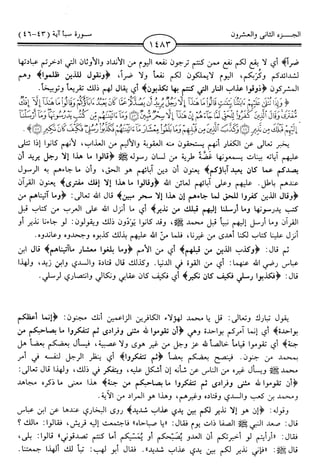 الجـــزء الثانى والعشرون
١٤٨٣
سـورة سبأ آية (٤٣-٤٦)
ضراً﴾ أي لا يقع لكم نفع ممن كنتم ترجون نفعه اليوم من الأنداد والأوثان التي ادخرتم عبادتها
لشدائدكم وكربكم، اليوم لا يملكون لكم نفعاً ولا ضراً، ﴿ونقول للذين ظلموا﴾ وهم
المشركون ﴿ذوقوا عذاب النار التي كنتم بها تكذبون﴾ أي يقال لهم ذلك تقريعاً وتوبيخاً.
يخبر تعالى عن الكفار أنهم يستحقون منه العقوبة والأليم من العذاب، لأنهم كانوا إذا تتلى
عليهم آياته بينات يسمعونها غضة طرية من لسان رسوله ﷺ ﴿قالوا ما هذا إلا رجل يريد أن
يصدكم عما كان يعبد آباؤكم﴾ يعنون أن دين آبائهم هو الحق، وأن ما جاءهم به الرسول
عندهم باطل. عليهم وعلى آبائهم لعائن الله ﴿وقالوا ما هذا إلا إفك مفترى﴾ يعنون القرآن
﴿وقال الذين كفروا للحق لما جاءهم إن هذا إلا سحر مبين﴾ قال الله تعالى: ﴿وما آتيناهم من
كتب يدرسونها وما أرسلنا إليهم قبلك من نذير﴾ أي ما أنزل الله على العرب من كتاب قبل
القرآن وما أرسل إليهم نبياً قبل محمد ﷺ، وقد كانوا يودون ذلك ويقولون: لو جاءنا نذير أو
أنزل علينا كتاب لكنا أهدى من غيرنا، فلما من الله عليهم بذلك كذبوه وجحدوه وعاندوه.
ثم قال: ﴿وكذب الذين من قبلهم﴾ أي من الأمم ﴿وما بلغوا معشار ما آتيناهم﴾ قال ابن
عباس رضي الله عنهما: أي من القوة في الدنيا. وكذلك قال قتادة والسدي وابن زيد، ولهذا
قال: ﴿فكذبوا رسلي فكيف كان نكير﴾ أي فكيف كان عقابي ونكالي وانتصاري لرسلي.
يقول تبارك وتعالى: قل يا محمد لهؤلاء الكافرين الزاعمين أنك مجنون: ﴿إنما أعظكم
بواحدة﴾ أي إنما آمركم بواحدة وهي ﴿أن تقوموا لله مثنى وفرادى ثم تتفكروا ما بصاحبكم من
جنة﴾ أي تقوموا قياماً خالصاً لله عز وجل من غير هوى ولا عصبية، فيسأل بعضكم بعضاً هل
بمحمد من جنون. فينصح بعضكم بعضاً ﴿ثم تتفكروا﴾ أي ينظر الرجل لنفسه في أمر
محمد ﷺ ويسأل غيره من الناس عن شأنه إن أشكل عليه، ويتفكر في ذلك، ولهذا قال تعالى:
﴿أن تقوموا لله مثنى وفرادى ثم تتفكروا ما بصاحبكم من جنة﴾ هذا معنى ما ذكره مجاهد
ومحمد بن كعب والسدي وقتادة وغيرهم، وهذا هو المراد من الآية.
وقوله: ﴿إن هو إلا نذير لكم بين يدي عذاب شديد﴾ روى البخاري عندها عن ابن عباس
قال: صعد النبي ﷺ الصفا ذات يوم فقال: «يا صباحاه» فاجتمعت إليه قريش، فقالوا: مالك ؟
فقال: «أرأيتم لو أخبرتكم أن العدو يصبحكم أو يمسيكم أما كنتم تصدقوني» قالوا: بلى،
قال ﷺ: «فإني نذير لكم بين يدي عذاب شديد». فقال أبو لهب: تباً لك ألهذا جمعتنا.